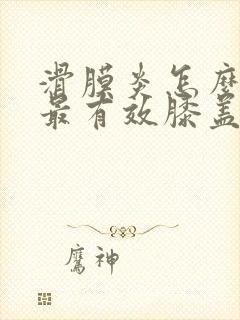 滑膜炎怎麽
最有效膝盖
鷹神